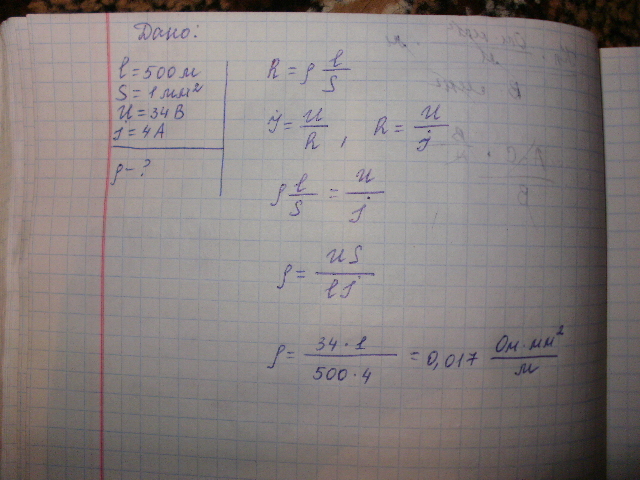 Дано:
l = 500 м
S = 1 мм²
U = 34 В
I = 4 А
ρ - ?
R = ρ l/S
I = U/R , R = U/I
ρ l/S = U/I
ρ = US/lI
ρ = 34 · 1/500 · 4 = 0,017 Ом · мм²/м